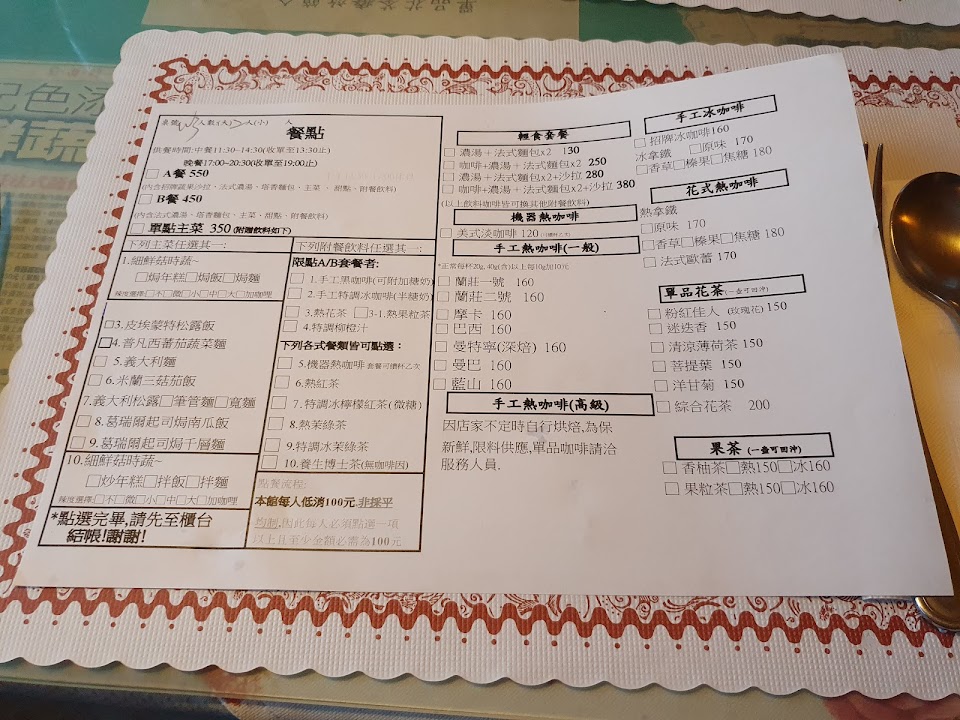 桌號 人數(大) 人(小) 人
餐點
供餐時間:中餐11:30~14:30(收單至13:30止)
晚餐17:00~20:30(收單至19:00止)
□A餐 550
(內含招牌蔬果沙拉、法式濃湯、塔香麵包、主菜、甜點、附餐飲料)
□B餐 450
(內含法式濃湯、塔香麵包、主菜、甜點、附餐飲料)
□單點主菜 350(附贈飲料如下)
下列主菜任選其一:
1.細鮮菇時蔬~
□焗年糕□焗飯□焗麵
辣度選擇:□不□微□小□中□大□加咖哩
□3.皮埃蒙特松露飯
□4.普凡西蕃茄蔬菜麵
□5.義大利麵
□6.米蘭三菇茄飯
7.義大利松露□筆管麵□寬麵
□8.葛瑞爾起司焗南瓜飯
□9.葛瑞爾起司焗千層麵
10.細鮮菇時蔬~
□炒年糕□拌飯□拌麵
辣度選擇:□不□微□小□中□大□加咖哩
*點選完畢,請先至櫃台
結帳!謝謝!
下列附餐飲料任選其一:
限點A/B套餐者:
□1.手工黑咖啡(可附加糖奶)
□2.手工特調冰咖啡(半糖奶)
□3.熱花茶 □3-1.熱果粒茶
□4.特調柳橙汁
下列各式餐類皆可點選:
□5.機器熱咖啡 套餐可續杯乙次
□6.熱紅茶
□7.特調冰檸檬紅茶(微糖)
□8.熱茉綠茶
□9.特調冰茉綠茶
□10.養生博士茶(無咖啡因)
點餐流程:
本館每人低消100元,非採平
均制,因此每人必須點選一項
以上且至少金額必需為100元
輕食套餐
□濃湯+法式麵包x2 130
□咖啡+濃湯+法式麵包x2 250
□濃湯+法式麵包x2+沙拉 280
□咖啡+濃湯+法式麵包x2+沙拉 380
(以上飲料咖啡皆可換其他附餐飲料)
機器熱咖啡
□美式淡咖啡 120(可續杯乙次)
手工熱咖啡(一般)
*正常每杯20g, 40g(含)以上每10g加10元
□蘭莊一號 160
□蘭莊二號 160
□摩卡 160
□巴西 160
□曼特寧(深焙) 160
□曼巴 160
□藍山 160
手工熱咖啡(高級)
因店家不定時自行烘焙,為保
新鮮,限料供應,單品咖啡請洽
服務人員.
手工冰咖啡
□招牌冰咖啡160
冰拿鐵 □原味 170
□香草□榛果□焦糖 180
花式熱咖啡
熱拿鐵
□原味 170
□香草□榛果□焦糖 180
□法式歐蕾 170
單品花茶(一壺可回沖)
□粉紅佳人 (玫瑰花)150
□迷迭香 150
□清涼薄荷茶 150
□菩提葉 150
□洋甘菊 150
□綜合花茶 200
果茶 (一壺可回沖)
□香柚茶□熱150□冰160
□果粒茶□熱150□冰160